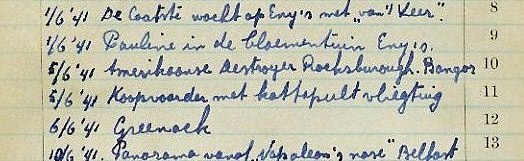 1/6 '41 De Laatste wacht op Eny's met "van 't Veer". 8
1/6 '41 Pauline in de bloementuin Eny's. 9
5/6 '41 Amerikaanse Destroyer Rocksburough. Bangor 10
5/6 '41 Koopvaarder met kattapult vliegtuig 11
6/6 '41 Greenock 12
10/6 '41. Panorama vanaf "Napoleon's nose" Belfast 13